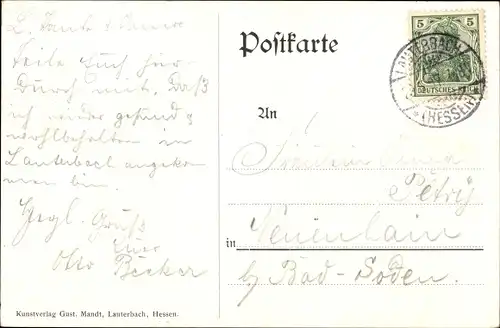 L. Tante +
Teile Euch hier-
durch mit, daß
ich wieder gesund &
wohlbehalten in
Lauterbach angekom
men bin.
Herzl. Gruß
Euer
Otto Becker
Kunstverlag Gust. Mandt, Lauterbach, Hessen.
Postkarte
5 5
DEUTSCHES REICH
LAUTERBACH
(HESSEN)
An
Fräulein
Petry
in Neuenhain
b/ Bad-Soden.